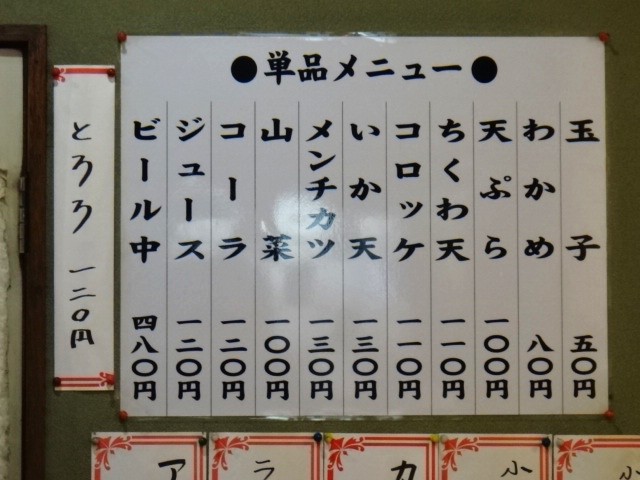 ●単品メニュー●
玉子 五〇円
わかめ 八〇円
天ぷら 一〇〇円
ちくわ天 一一〇円
コロッケ 一一〇円
いか天 一三〇円
メンチカツ 一三〇円
山菜 一〇〇円
コーラ 一二〇円
ジュース 一二〇円
ビール中 四八〇円
とろろ 一二〇円
小
小
カ
ラ
ア